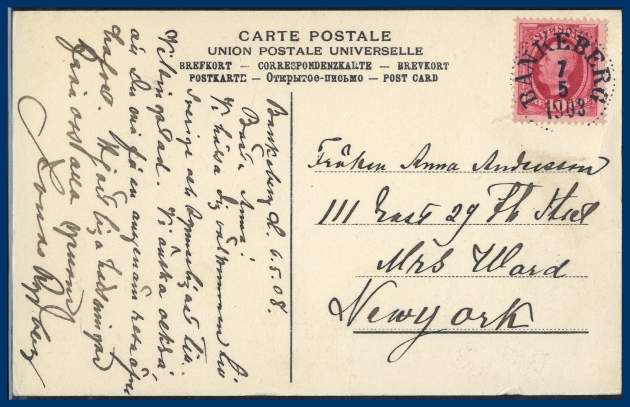 CARTE POSTALE
UNION POSTALE UNIVERSELLE
BREFKORT — CORRESPONDENZKARTE — BREVKORT
POSTKARTE — ОТКРЫТОЕ-ПИСЬМО — POST CARD
BANKEBERG
7
5
1908
Bankeberg d. 6.5.08.
Bästa Anna!
Vi hälsa Dig välkommen till
Sverige och
Vi önska också
att Du må få en angenäm resa
Hjärtliga hälsningar
från oss alla
Fröken Anna Andersson
111 East 29 Th Street
Mrs Ward
New york